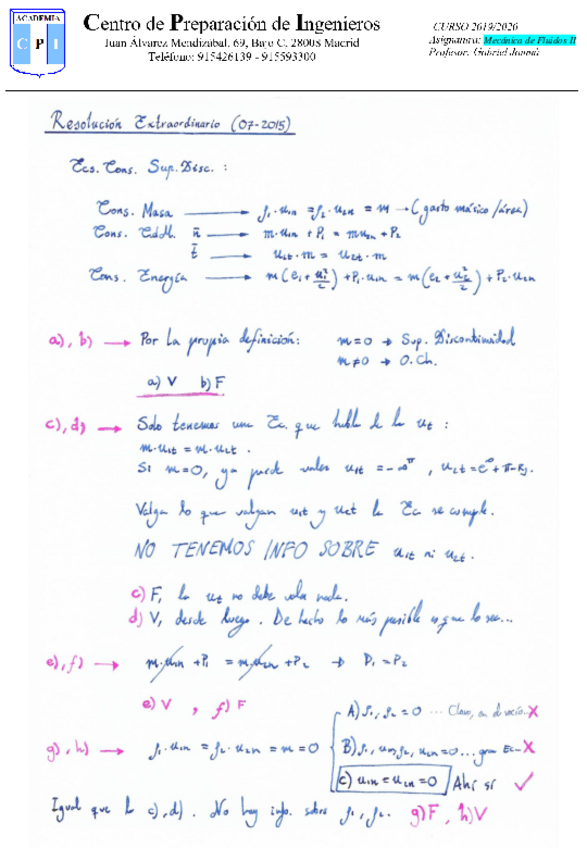 ACADEMIA
C P I
Centro de Preparación de Ingenieros
Juan Álvarez Mendizábal, 69, Bajo C. 28008 Madrid
Teléfono: 915426139 - 915593300
CURSO 2019/2020
Asignatura: Mecánica de Fluidos II
Profesor: Gabriel
Resolución Extraordinario (07-2015)
Ecs. Cons. Sup. Disc. :
Cons. Masa → ρ₁·u₁n = ρ₂·u₂n = m → (gasto másico/área)
Cons. CdM. n̄ → m·u₁n + P₁ = mu₂n + P₂
t̄ → u₁t·m = u₂t·m
Cons. Energía → m(e₁+u₁²/2)+P₁·u₁n = m(e₂+u₂²/2)+P₂·u₂n
a), b) → Por la propia definición: m=0 → Sup. Discontinuidad
m≠0 → O.Ch.
a) V b) F
c), d) → Solo tenemos una Ec. que hable de la ut :
m·u₁t = m·u₂t .
Si m=0, ya puede valer u₁t = -∞^π , u₂t =
Valga lo que valgan u₁t y u₂t la Ec se cumple.
NO TENEMOS INFO SOBRE u₁t ni u₂t.
c) F, la ut no debe valer nada.
d) V, desde luego. De hecho lo más posible es que lo sea...
e), f) → m·u₁n + P₁ = m·u₂n + P₂ → P₁ = P₂
e) V , f) F
A) ρ₁, ρ₂ = 0 ... Claro, en el vacío. X
g), h) → ρ₁·u₁n = ρ₂·u₂n = m = 0
B) ρ₁, u₁n ρ₂, u₂n = 0 ... gran Ec- X
C) u₁n = u₂n = 0 Ahí sí ✓
Igual que la c), d). No hay info. sobre ρ₁, ρ₂. g) F, h) V